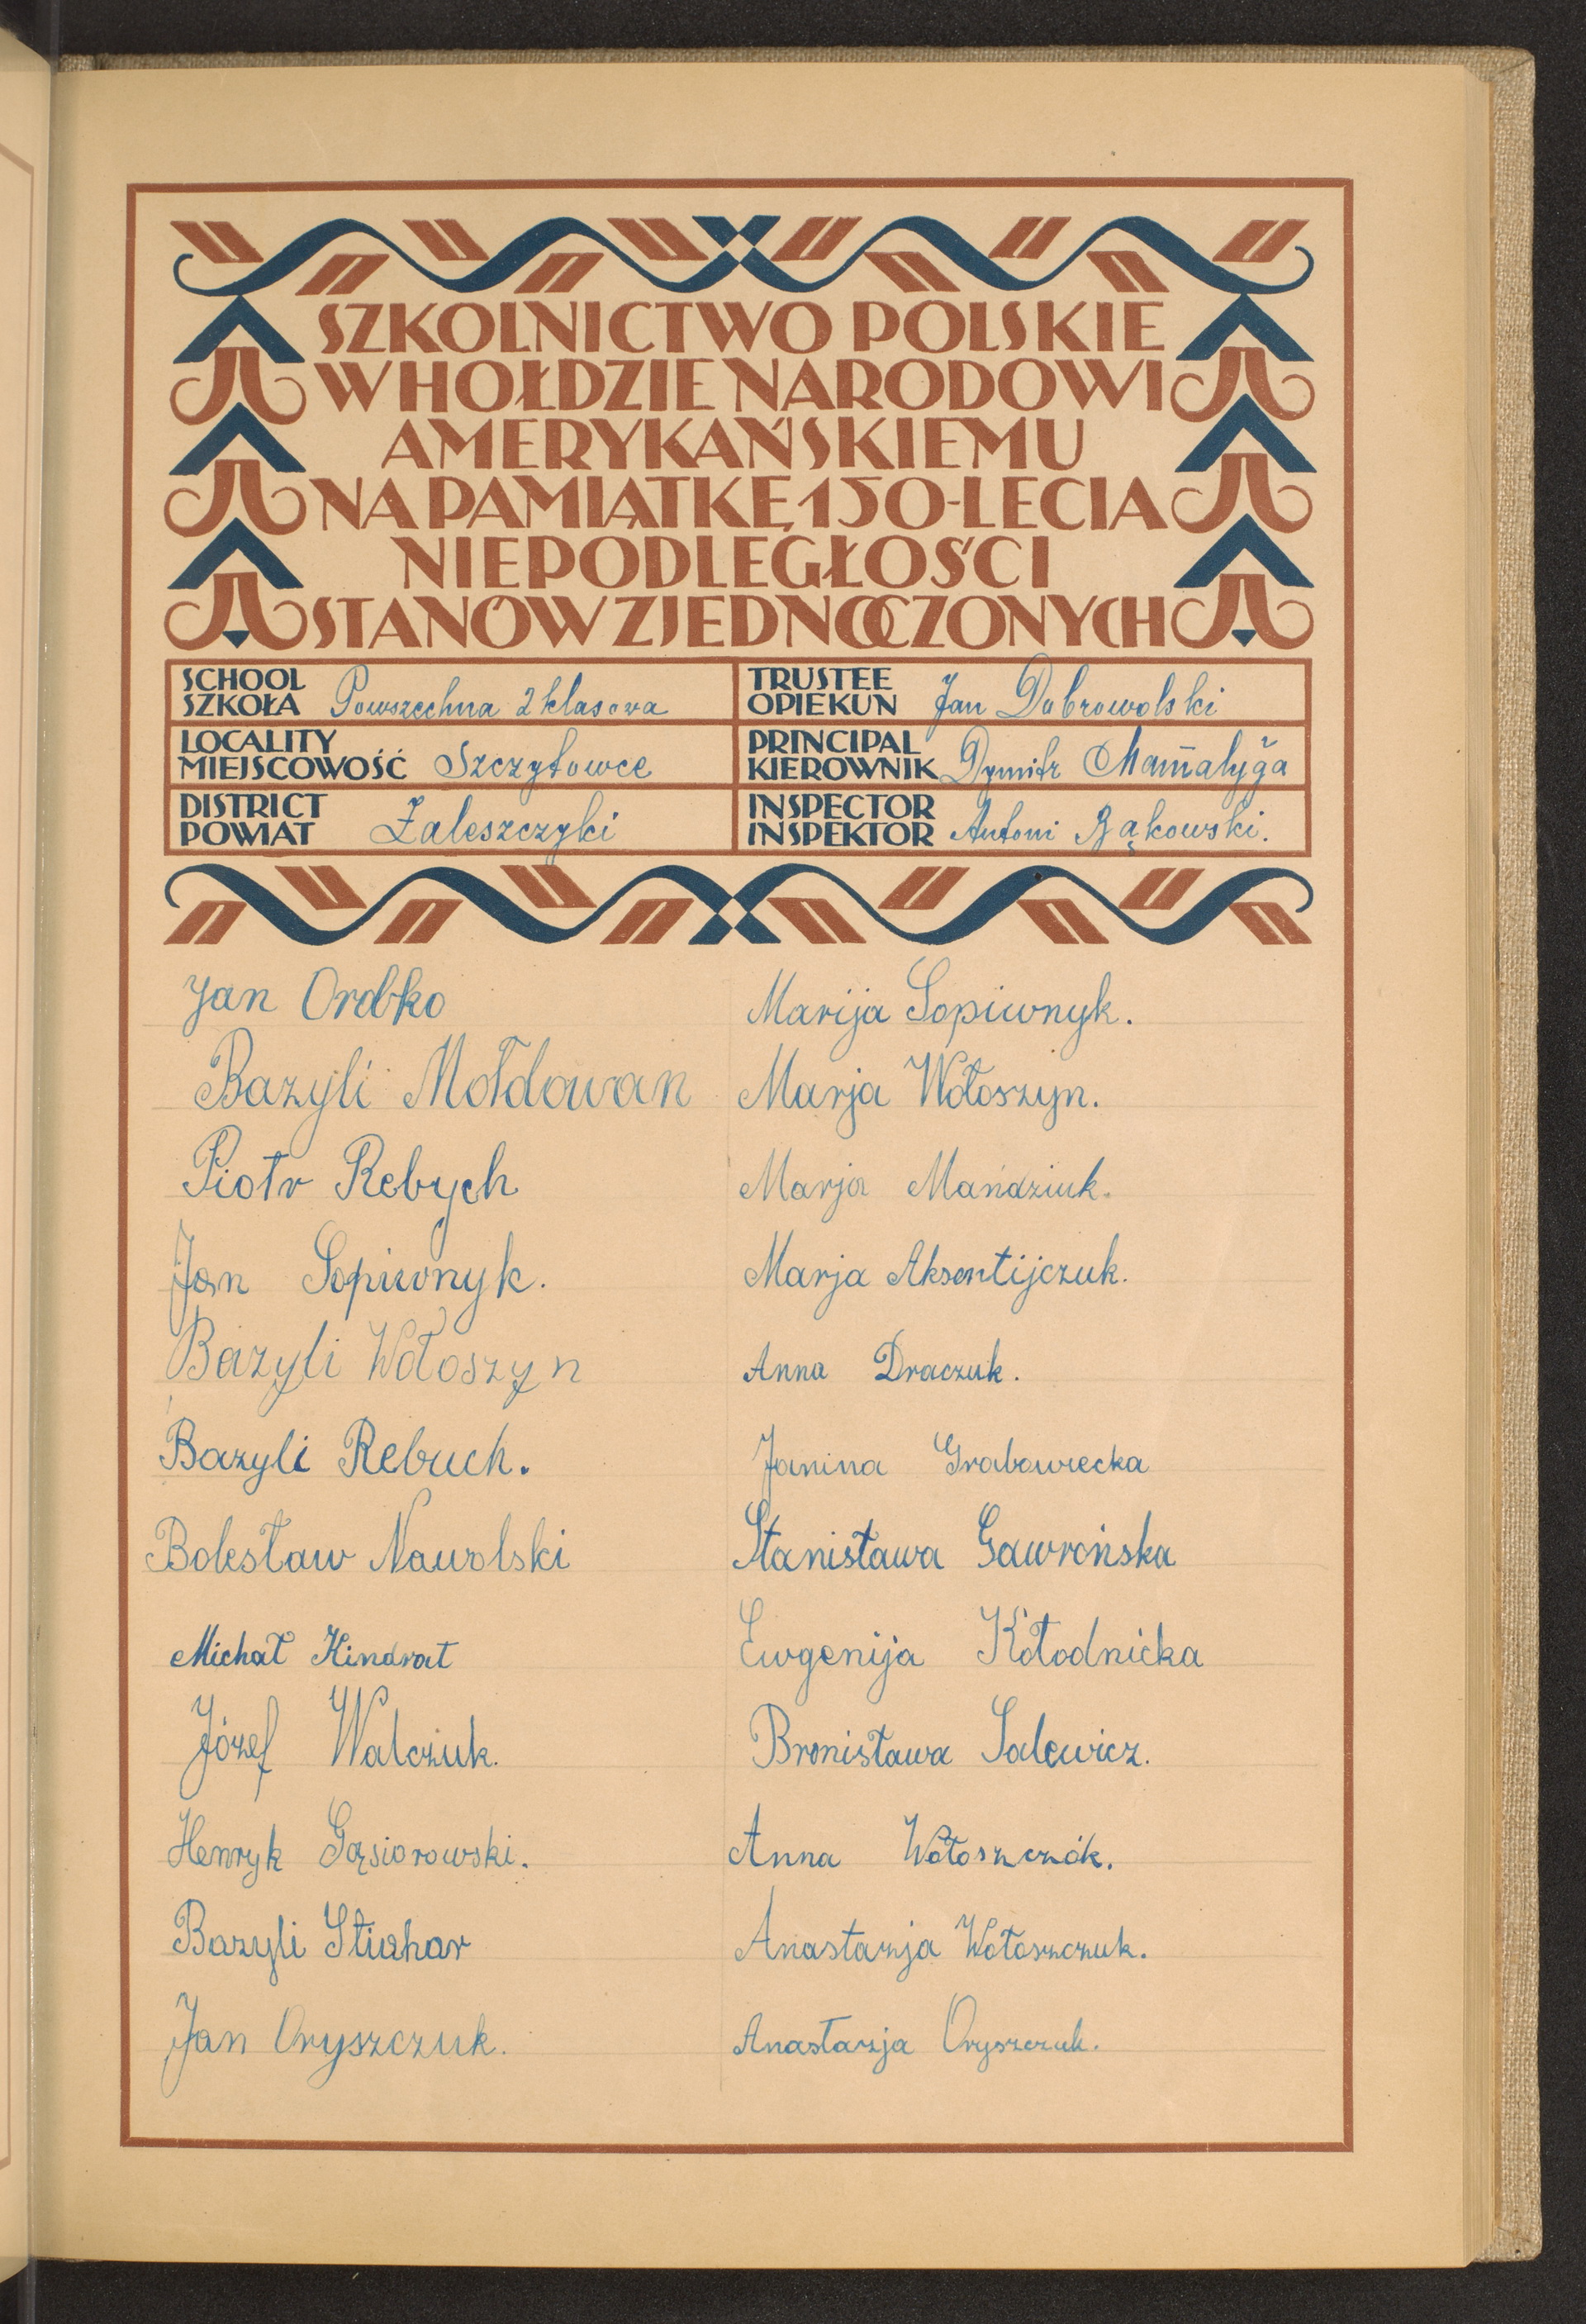 SZKOLNICTWO POLSKIE
W HOŁDZIE NARODOWI
AMERYKAŃSKIEMU
NA PAMIĄTKĘ 150-LECIA
NIEPODLEGŁOŚCI
STANÓW ZJEDNOCZONYCH
SCHOOL
SZKOŁA Powszechna 2 klasowa
TRUSTEE
OPIEKUN Jan Dobrowolski
LOCALITY
MIEJSCOWOŚĆ Szczytowce
PRINCIPAL
KIEROWNIK Dymitr Mamałyga
DISTRICT
POWIAT Zaleszczyki
INSPECTOR
INSPEKTOR Antoni Bąkowski.
Jan Orobko
Bazyli Mołdowan
Piotr Rebych
Jan Sopiwnyk.
Bazyli Wołoszyn
Bazyli Rebuch.
Bolesław Nawolski
Michał Kindrat
Józef Walczuk.
Henryk Gąsiorowski.
Bazyli Stiahar
Jan Oryszczuk.
Marija Sopiwnyk.
Marja Wołoszyn.
Marja Mandziuk.
Marja Aksentijczuk.
Anna Draczuk.
Janina Grabowiecka
Stanisława Gawrońska
Ewgenija Kołodnicka
Bronisława Salewicz.
Anna Wołoszczók.
Anastazja Wołoszczuk.
Anastazja Oryszczuk.